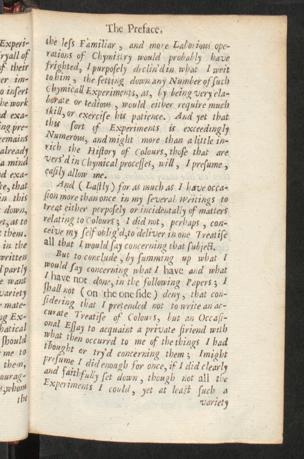 The Preface.
the less Familiar, and more Laborious ope-
rations of Chymistry would probably have
frighted, I purposely declin'd in what I writ
to him, the setting down any Number of such
Chymicall Experiments, as, by being very ela-
borate or tedious, would either require much
skill, or exercise his patience. And yet that
this sort of Experiments is exceedingly
Numerous, and might more than a little in-
rich the History of Colours, those that are
vers'd in Chymical processes, will, I presume,
easily allow me.
And (Lastly) for as much as I have occa-
sion more than once in my several Writings to
treat either porposely or incidentally of matters
relating to Colours; I did not, perhaps, con-
ceive my self oblig'd, to deliver in one Treatise
all that I would say concerning that subject.
But to conclude, by summing up what I
would say concerning what I have and what
I have not done, in the following Papers; I
shall not (on the one side) deny, that con-
sidering that I pretended not to write an ac-
curate Treatise of Colours, but an Occasi-
onal Essay to acquaint a private friend with
what then occurred to me of the things I had
thought or try'd concerning them; I might
presume I did enough for once, if I did clearly
and faithfully set down, though not all the
Experiments I could, yet at least such a
variety
Experi-
ryall of
of their
er im-
to insert
he work
nd exa-
ing pre-
remains
already
a mind
nd exa-
be, that
in this
down,
et, as to
t them.
in the
written
d partly
e want
variety
r mate-
ng Ex-
hatical
should
me to
them,
ourag-
s, whom
the